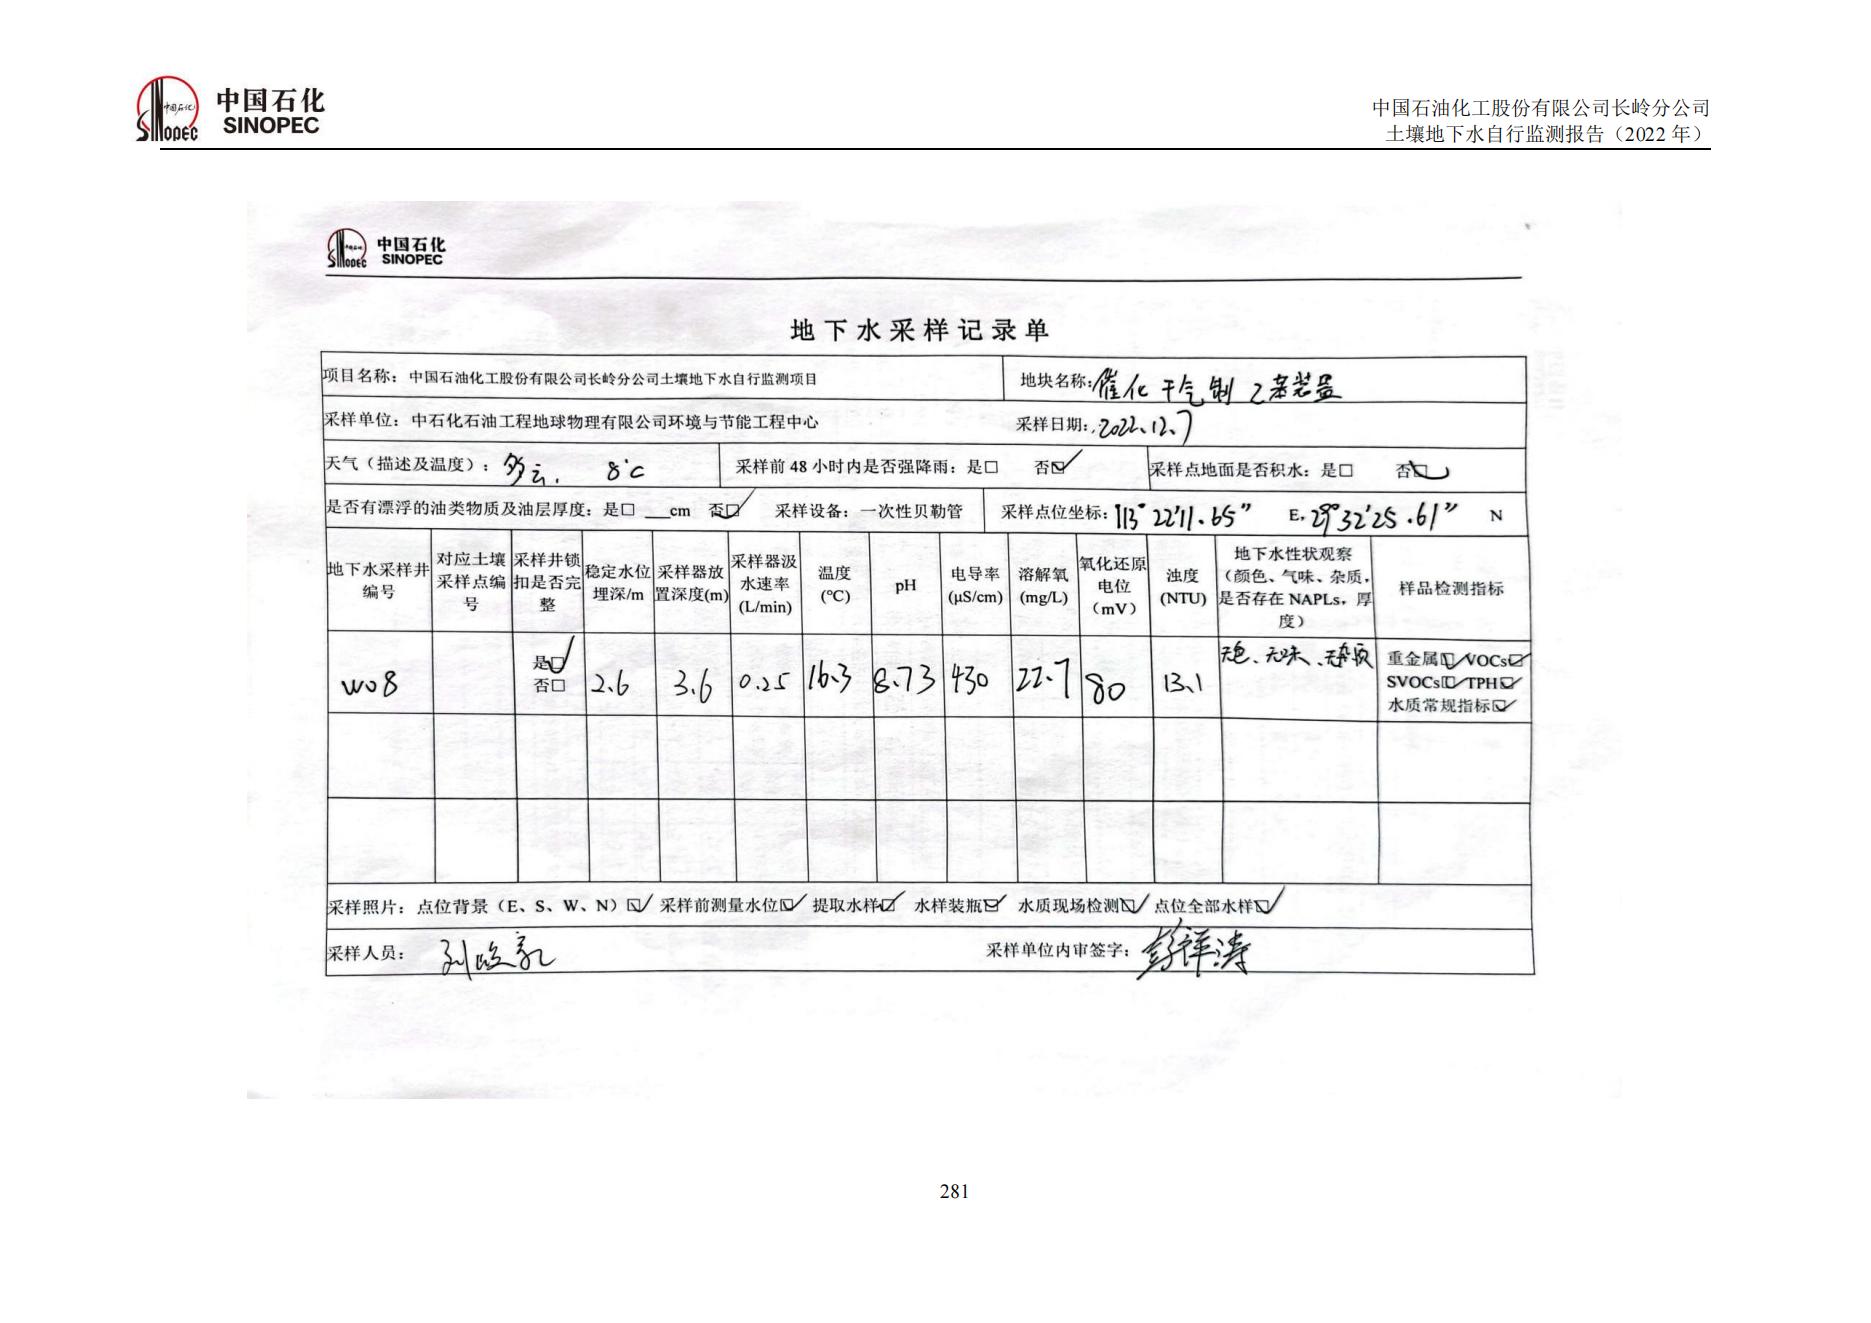 中国石化
SINOPEC
中国石油化工股份有限公司长岭分公司
土壤地下水自行监测报告（2022 年）
中国石化
SINOPEC
地下水采样记录单
项目名称：中国石油化工股份有限公司长岭分公司土壤地下水自行监测项目 地块名称：催化干气制乙苯装置
采样单位：中石化石油工程地球物理有限公司环境与节能工程中心 采样日期：2022.12.7
天气（描述及温度）：多云. 8℃ 采样前 48 小时内是否强降雨：是□ 否☑ 采样点地面是否积水：是□ 否☑
是否有漂浮的油类物质及油层厚度：是□ __cm 否☑ 采样设备：一次性贝勒管 采样点位坐标：113°22'11.65" E，29°32'25.61" N
地下水采样井编号 对应土壤采样点编号 采样井锁扣是否完整 稳定水位埋深/m 采样器放置深度(m) 采样器汲水速率(L/min) 温度(℃) pH 电导率(μS/cm) 溶解氧(mg/L) 氧化还原电位（mV） 浊度(NTU) 地下水性状观察（颜色、气味、杂质，是否存在 NAPLs，厚度） 样品检测指标
W08 是☑ 否□ 2.6 3.6 0.25 16.3 8.73 430 22.7 80 13.1 无色、无味、无杂质 重金属☑ VOCs☑ SVOCs☑ TPH☑ 水质常规指标☑
采样照片：点位背景（E、S、W、N）☑ 采样前测量水位☑ 提取水样☑ 水样装瓶☑ 水质现场检测☑ 点位全部水样☑
采样人员： 采样单位内审签字：彭祥涛
281